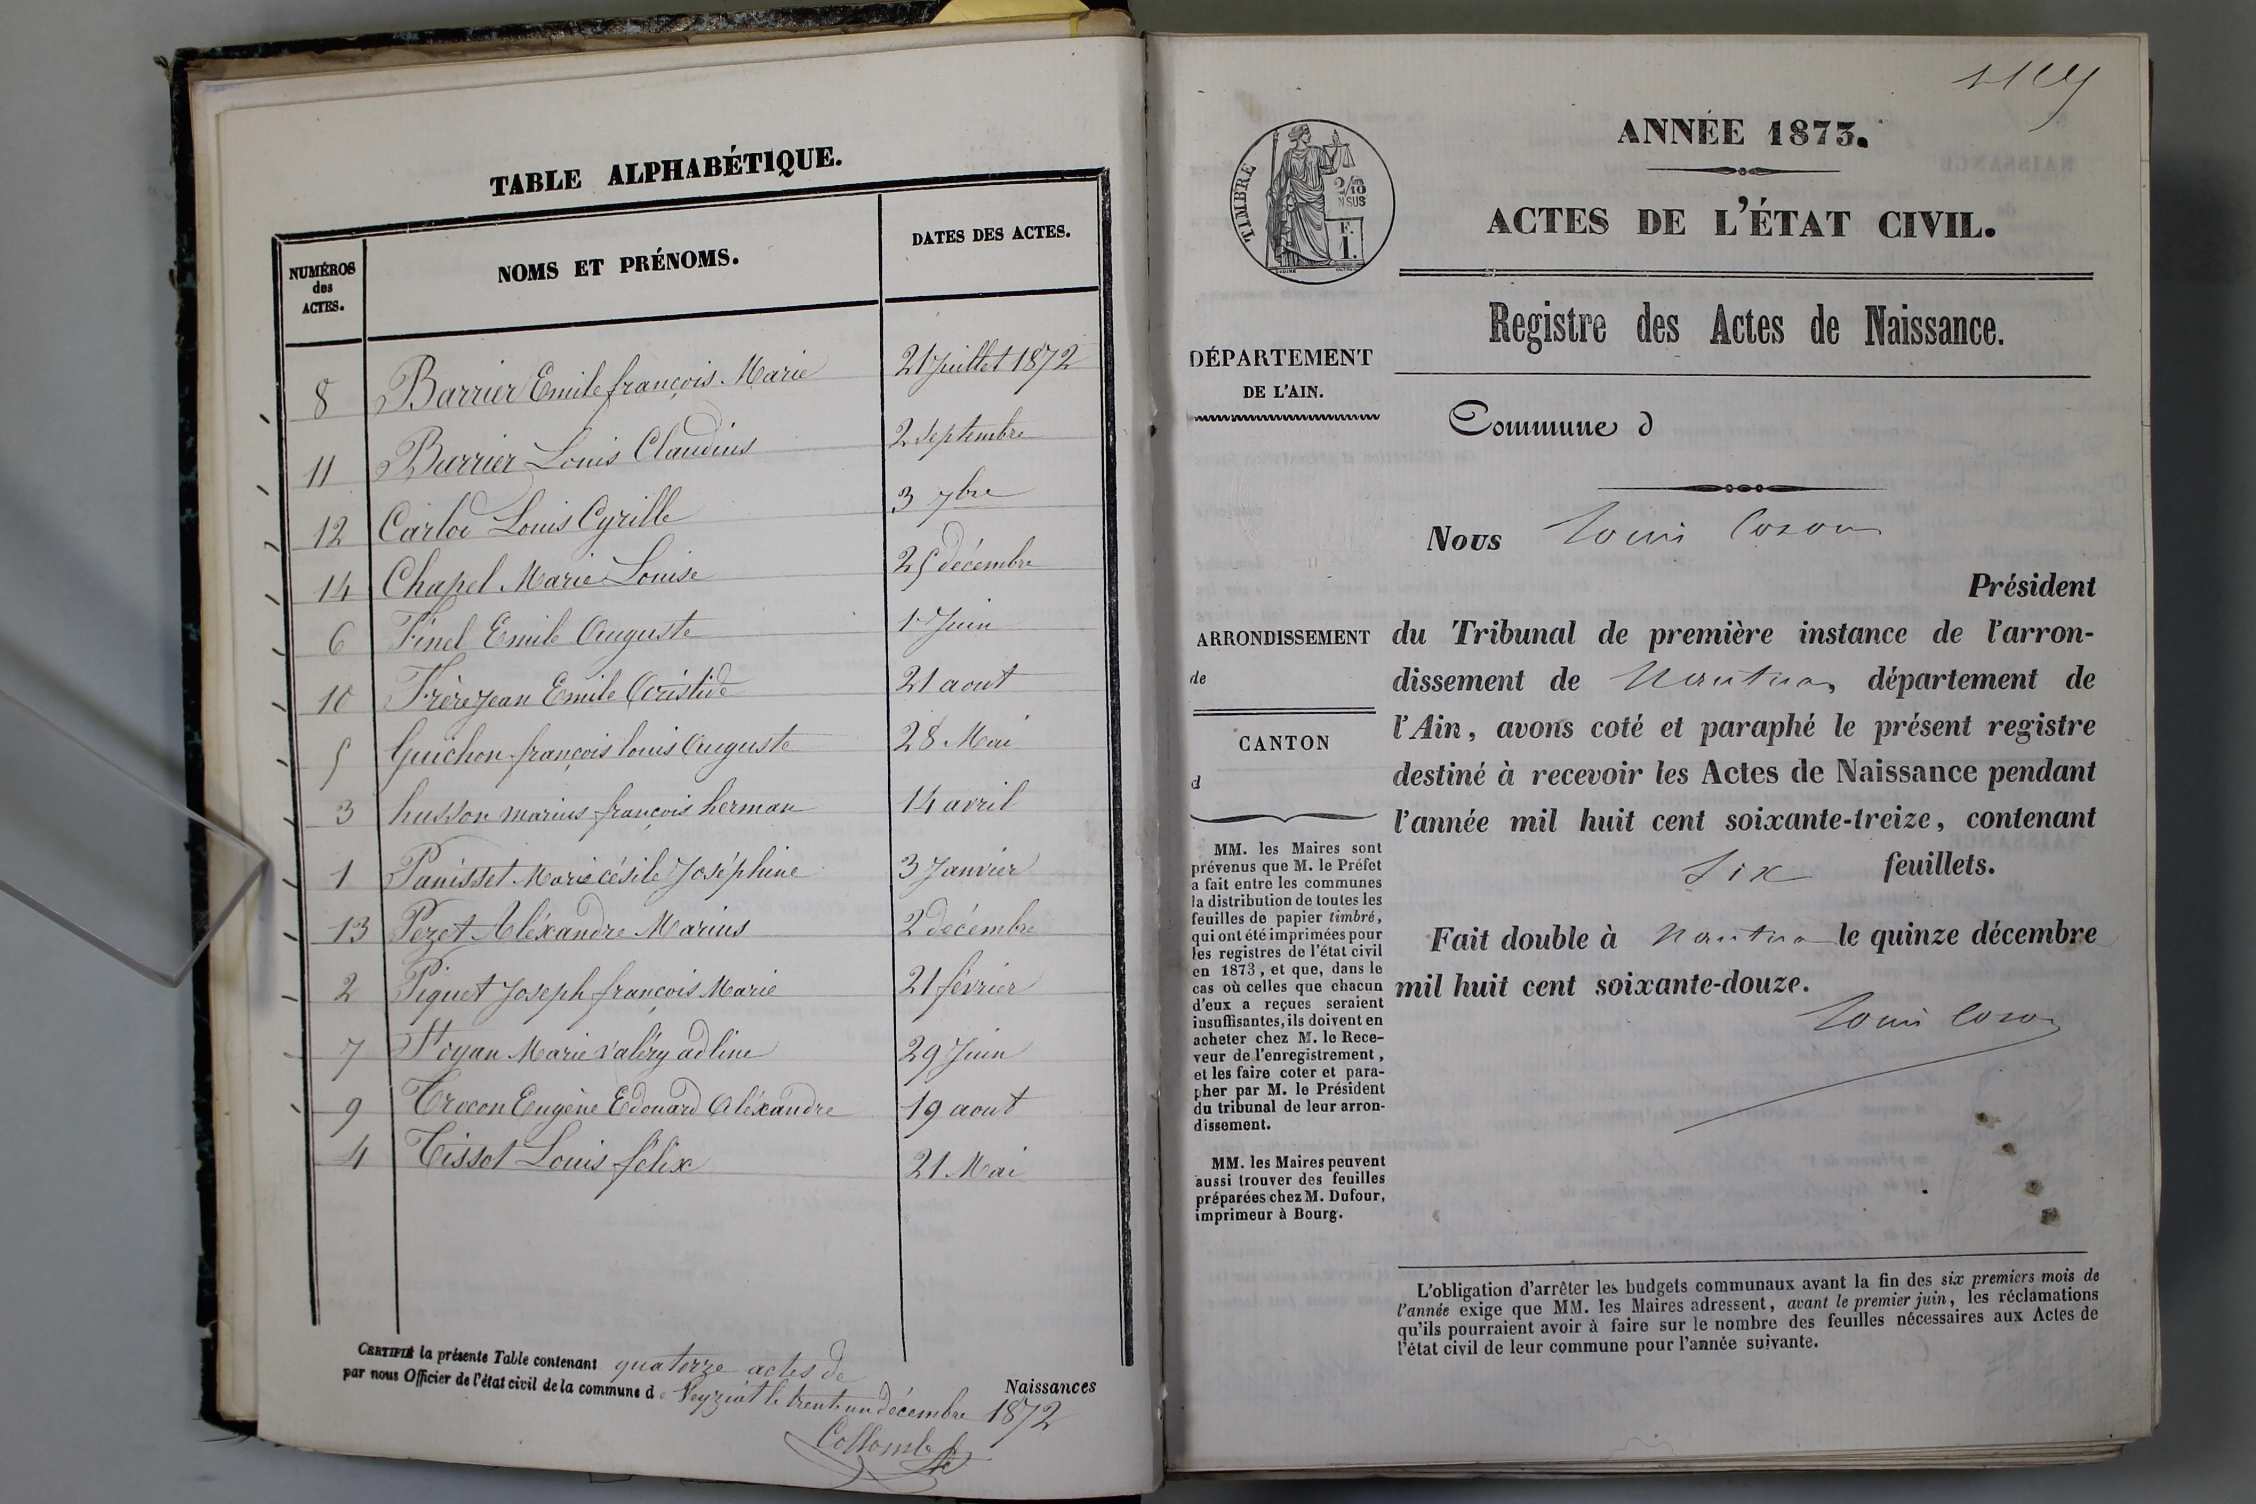 TABLE ALPHABÉTIQUE.
NUMÉROS des ACTES.
NOMS ET PRÉNOMS.
DATES DES ACTES.
8 Barrier Emile françois Marie 21 Juillet 1872
11 Barrier Louis Claudius 2 septembre
12 Carlod Louis Cyrille 3 7bre
14 Chapel Marie Louise 25 décembre
6 Finel Emile Auguste 1er Juin
10 Frèrejean Emile Aristide 21 aout
5 Guichon françois louis Auguste 28 Mai
3 husson marius françois herman 14 avril
1 Panisset Marie césile Joséphine 3 Janvier
13 Pezet Aléxandre Marius 2 décembre
2 Piquet Joseph françois Marie 21 février
7 Marie valéry adline 29 Juin
9 Trocon Eugène Edouard Aléxandre 19 aout
4 Tissot Louis félix 21 Mai
CERTIFIÉ la présente Table contenant quatorze actes de Naissances
par nous Officier de l'état civil de la commune de Veyziat le trente un décembre 1872
Collomb
ANNÉE 1873.
ACTES DE L'ÉTAT CIVIL.
TIMBRE
2/10 EN SUS
F. 1.
Registre des Actes de Naissance.
DÉPARTEMENT
DE L'AIN.
Commune d
Nous Louis Cozon
Président
ARRONDISSEMENT
de
CANTON
d
du Tribunal de première instance de l'arron-
dissement de Nantua, département de
l'Ain, avons coté et paraphé le présent registre
destiné à recevoir les Actes de Naissance pendant
l'année mil huit cent soixante-treize, contenant
six feuillets.
Fait double à Nantua le quinze décembre
mil huit cent soixante-douze.
Louis Cozon
MM. les Maires sont
prévenus que M. le Préfet
a fait entre les communes
la distribution de toutes les
feuilles de papier timbré,
qui ont été imprimées pour
les registres de l'état civil
en 1873, et que, dans le
cas où celles que chacun
d'eux a reçues seraient
insuffisantes, ils doivent en
acheter chez M. le Rece-
veur de l'enregistrement,
et les faire coter et para-
pher par M. le Président
du tribunal de leur arron-
dissement.
MM. les Maires peuvent
aussi trouver des feuilles
préparées chez M. Dufour,
imprimeur à Bourg.
L'obligation d'arrêter les budgets communaux avant la fin des six premiers mois de
l'année exige que MM. les Maires adressent, avant le premier juin, les réclamations
qu'ils pourraient avoir à faire sur le nombre des feuilles nécessaires aux Actes de
l'état civil de leur commune pour l'année suivante.